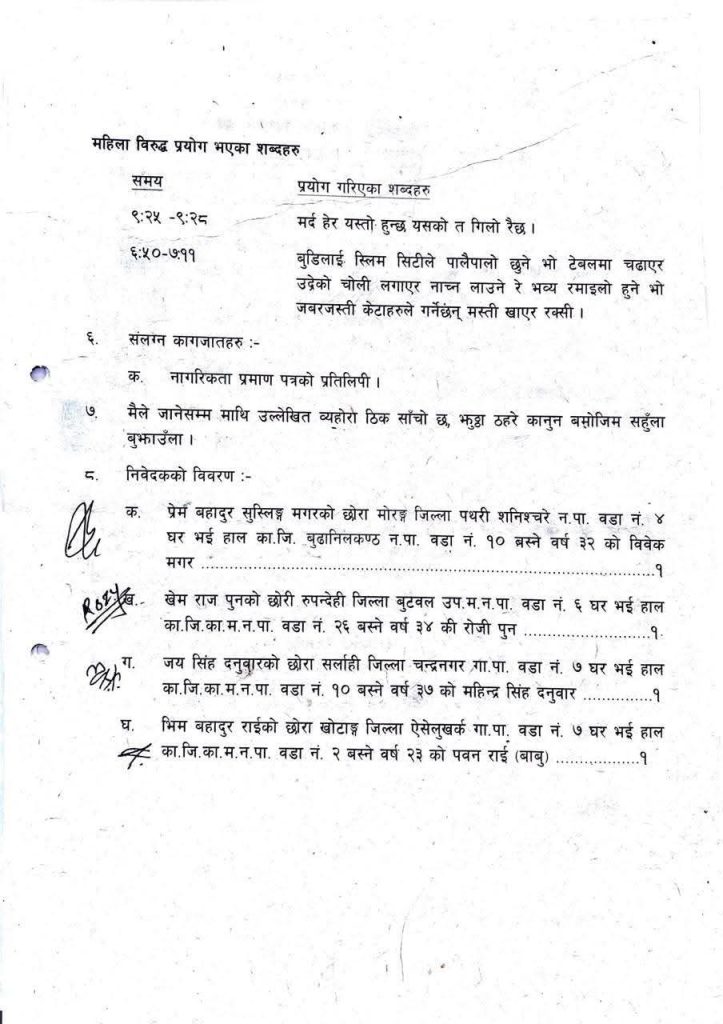 महिला विरुद्ध प्रयोग भएका शब्दहरु
समय प्रयोग गरिएका शब्दहरु
९:२५ -९:२८ मर्द हेर यस्तो हुन्छ यसको त गिलो रैछ ।
६:५०-७:११ बुडिलाई स्लिम सिटीले पालैपालो छुने भो टेबलमा चढाएर
उद्रेको चोली लगाएर नाच्न लाउने रे भव्य रमाइलो हुने भो
जबरजस्ती केटाहरुले गर्नेछन् मस्ती खाएर रक्सी ।
६. संलग्न कागजातहरु :-
क. नागरिकता प्रमाण पत्रको प्रतिलिपी ।
७. मैले जानेसम्म माथि उल्लेखित व्यहोरा ठिक साँचो छ, झुठ्ठा ठहरे कानुन बमोजिम सहुँला
बुझाउँला ।
८. निवेदकको विवरण :-
क. प्रेम बहादुर सुस्लिङ्ग मगरको छोरा मोरङ्ग जिल्ला पथरी शनिश्चरे न.पा. वडा नं. ४
घर भई हाल का.जि. बुढानिलकण्ठ न.पा. वडा नं. १० बस्ने वर्ष ३२ को विवेक
मगर ........................................................................................१
ROZY ख. खेम राज पुनको छोरी रुपन्देही जिल्ला बुटवल उप.म.न.पा. वडा नं. ६ घर भई हाल
का.जि.का.म.न.पा. वडा नं. २६ बस्ने वर्ष ३४ की रोजी पुन ........................१
ग. जय सिंह दनुवारको छोरा सर्लाही जिल्ला चन्द्रनगर गा.पा. वडा नं. ७ घर भई हाल
का.जि.का.म.न.पा. वडा नं. १० बस्ने वर्ष ३७ को महिन्द्र सिंह दनुवार ..............१
घ. भिम बहादुर राईको छोरा खोटाङ्ग जिल्ला ऐसेलुखर्क गा.पा. वडा नं. ७ घर भई हाल
का.जि.का.म.न.पा. वडा नं. २ बस्ने वर्ष २३ को पवन राई (बाबु) .................१